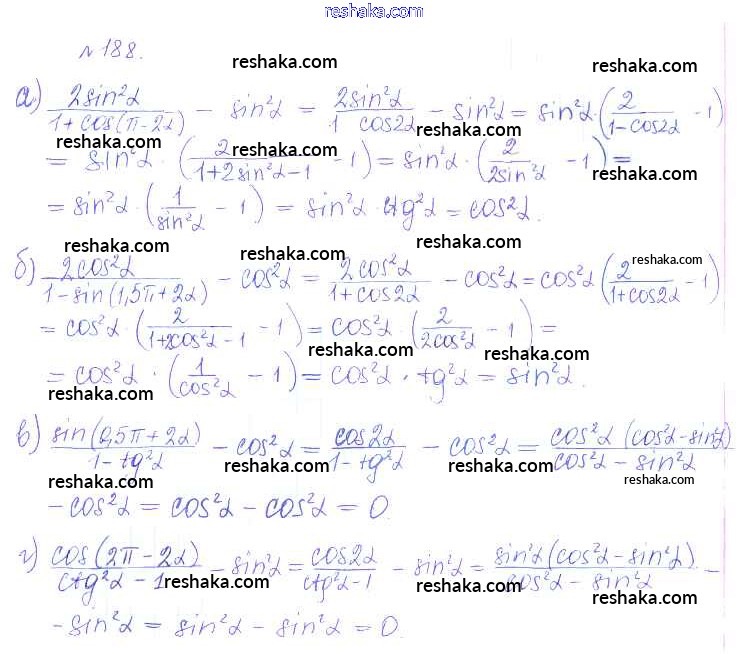 www.reshaka.com
№188.
reshaka.com reshaka.com
а) 2sin²α/(1+cos(π-2α)) - sin²α = 2sin²α/(1 cos2α) - sin²α = sin²α·(2/(1-cos2α) - 1)
reshaka.com reshaka.com reshaka.com
= sin²α · (2/(1+2sin²α-1) - 1) = sin²α · (2/(2sin²α) - 1) =
reshaka.com reshaka.com
= sin²α · (1/sin²α - 1) = sin²α · ctg²α = cos²α.
reshaka.com reshaka.com reshaka.com reshaka.com
б) 2cos²α/(1-sin(1,5π+2α)) - cos²α = 2cos²α/(1+cos2α) - cos²α = cos²α (2/(1+cos2α) - 1)
= cos²α · (2/(1+2cos²α-1) - 1) = cos²α · (2/(2cos²α) - 1) =
reshaka.com reshaka.com
= cos²α · (1/cos²α - 1) = cos²α · tg²α = sin²α.
reshaka.com
в) sin(0,5π+2α)/(1-tg²α) - cos²α = cos2α/(1-tg²α) - cos²α = cos²α (cos²α-sin²α)/(cos²α-sin²α)
reshaka.com reshaka.com reshaka.com
- cos²α = cos²α - cos²α = 0.
г) cos(2π-2α)/(ctg²α-1) - sin²α = cos2α/(ctg²α-1) - sin²α = sin²α(cos²α-sin²α)/(cos²α-sin²α) -
reshaka.com reshaka.com reshaka.com
- sin²α = sin²α - sin²α = 0.